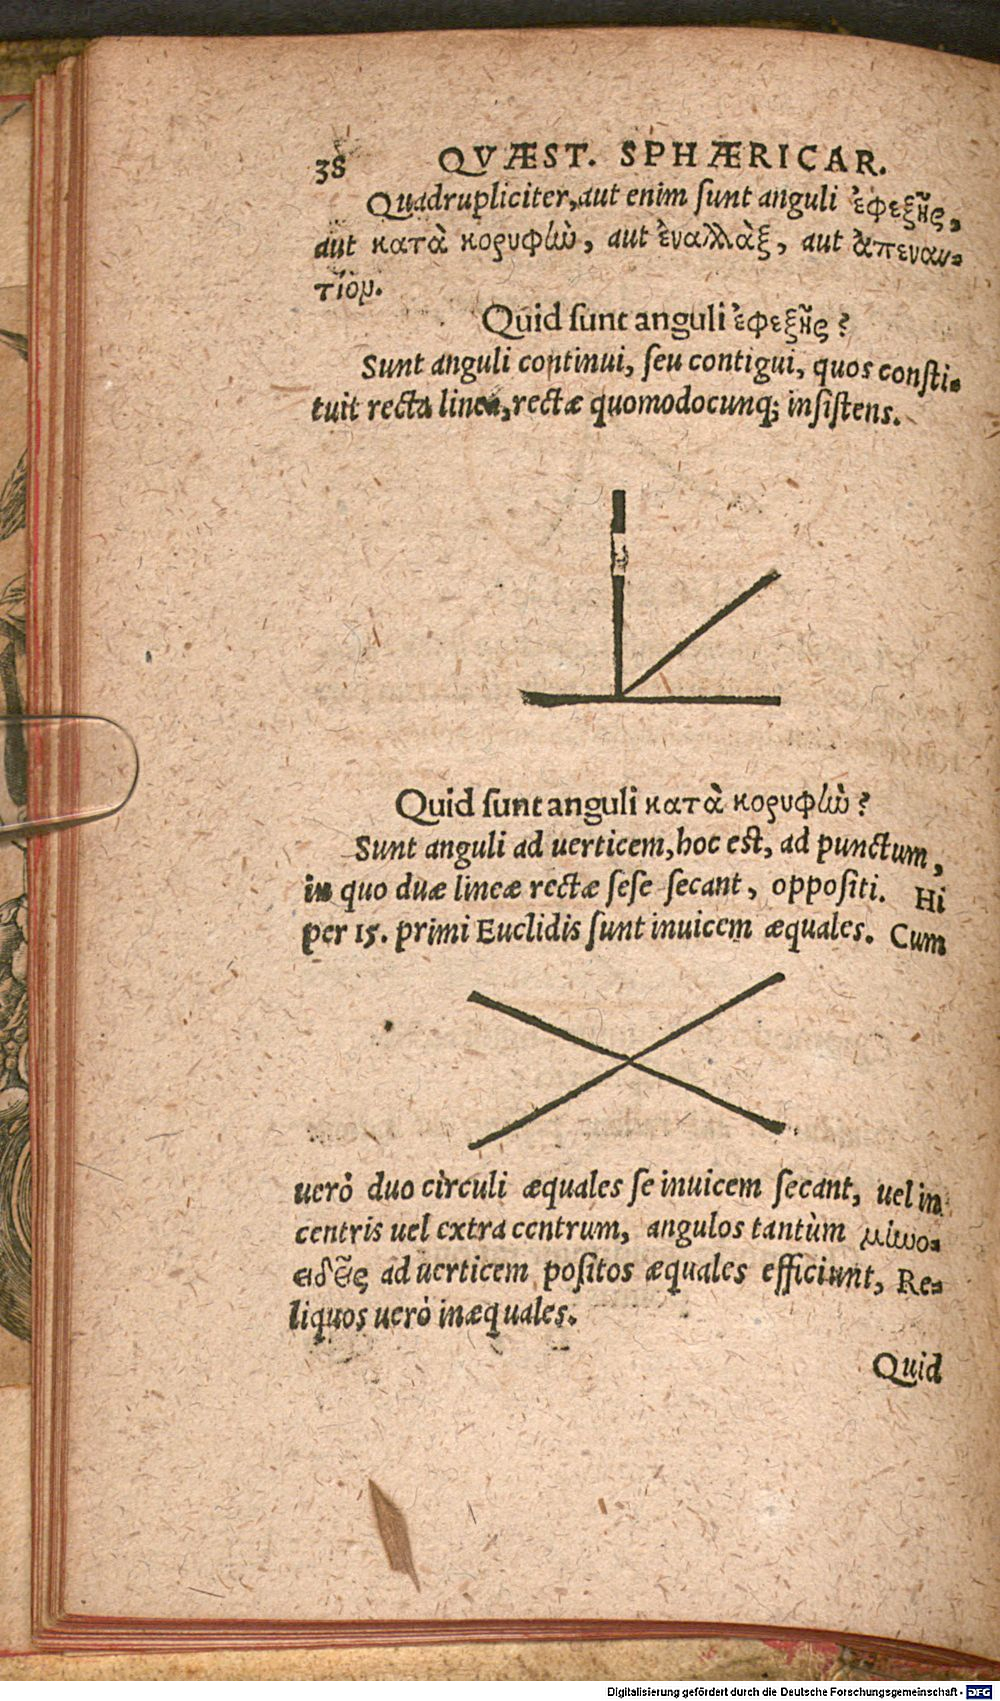 38 QVÆST. SPHÆRICAR.
Quadrupliciter, aut enim ſunt anguli ἐφεξῆς,
aut κατὰ κορυφὴν, aut ἐναλλὰξ, aut ἀπεναν-
τίον.
Quid ſunt anguli ἐφεξῆς?
Sunt anguli continui, ſeu contigui, quos conſti-
tuit recta linea, rectæ quomodocunq; inſiſtens.
Quid ſunt anguli κατὰ κορυφὴν?
Sunt anguli ad uerticem, hoc eſt, ad punctum,
in quo duæ lineæ rectæ ſeſe ſecant, oppoſiti. Hi
per 15. primi Euclidis ſunt inuicem æquales. Cum
uerò duo circuli æquales ſe inuicem ſecant, uel in
centris uel extra centrum, angulos tantùm μηνο-
ειδεῖς ad uerticem poſitos æquales efficiunt, Re-
liquos uerò inæquales.
Quid
Digitalisierung gefördert durch die Deutsche Forschungsgemeinschaft - DFG